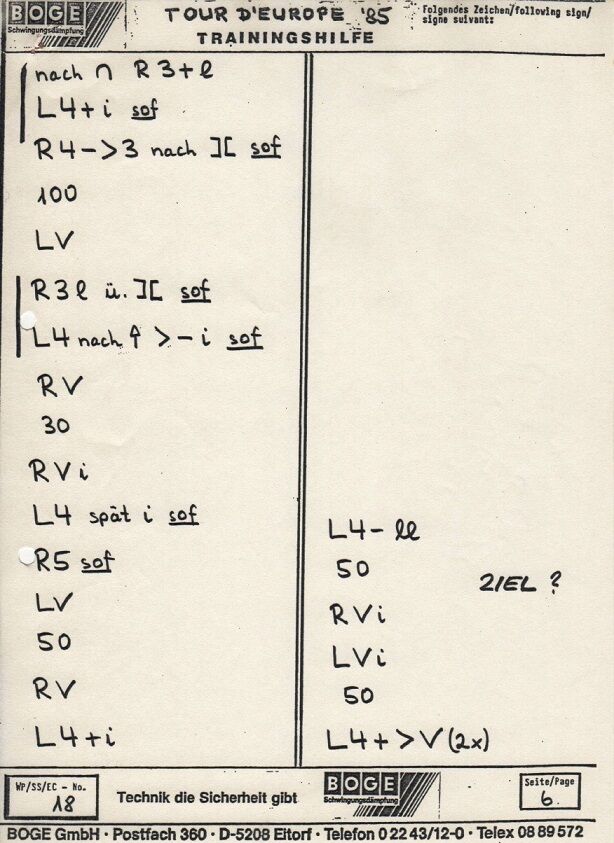 BOGE
Schwingungsdämpfung
TOUR D'EUROPE '85
TRAININGSHILFE
Folgendes Zeichen/following sign/
signe suivant:
nach ∩ R3+l
L4+i sof
R4->3 nach ][ sof
100
LV
R3l ü. ][ sof
L4 nach ↑ >-i sof
RV
30
RVi
L4 spät i sof
R5 sof
LV
50
RV
L4+i
L4-ll
50
ZIEL ?
RVi
LVi
50
L4+>V(2x)
WP/SS/EC - No.
18
Technik die Sicherheit gibt
BOGE
Schwingungsdämpfung
Seite/Page
6.
BOGE GmbH · Postfach 360 · D-5208 Eitorf · Telefon 0 22 43/12-0 · Telex 08 89 572